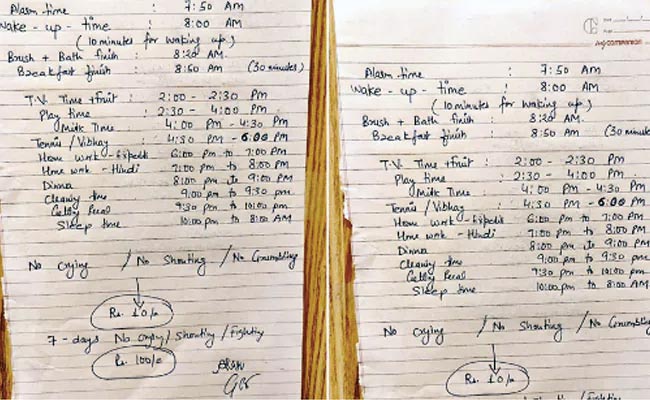 Alarm time : 7:50 AM
Wake - up - time : 8:00 AM
(10 minutes for waking up)
Brush + Bath finish : 8:20 AM
Breakfast finish : 8:50 AM (30 minutes)
T.V. Time + Fruit : 2:00 - 2:30 PM
Play time : 2:30 - 4:00 PM
Milk Time : 4:00 PM - 4:30 PM
Tennis / Vibhay : 4:30 PM - 6:00 PM
Home work - : 6:00 pm to 7:00 PM
Home work - Hindi : 7:00 pm to 8:00 PM
Dinner 8:00 pm to 9:00 PM
Cleaning time 9:00 pm to 9:30 pm
9:30 pm to 10:00 pm
Sleep time 10:00 pm to 8:00 AM
No Crying / No Shouting / No Grumbling
Rs. 10/-
7 - days No Crying / Shouting / Fighting
Rs. 100/-
Alarm time : 7:50 AM
Wake - up - time : 8:00 AM
(10 minutes for waking up)
Brush + Bath finish : 8:20 AM
Breakfast finish : 8:50 AM (30 minutes
T.V. Time + Fruit : 2:00 - 2:30 PM
Play time : 2:30 - 4:00 PM
Milk Time : 4:00 PM - 4:30 PM
Tennis / Vibhay : 4:30 PM - 6:00 PM
Home work - : 6:00 pm to 7:00 PM
Home work - Hindi : 7:00 pm to 8:00 PM
Dinner 8:00 pm to 9:00 PM
Cleaning time 9:00 pm to 9:30 pm
9:30 pm to 10:00 pm
Sleep time 10:00 pm to 8:00 AM
No Crying / No Shouting / No Grumbling
Rs. 10/-